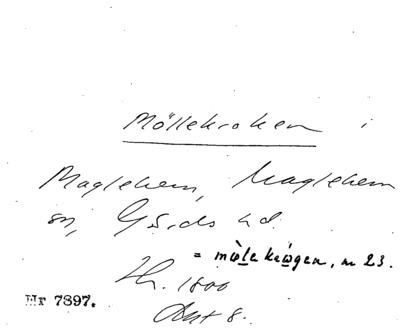 Möllekroken i
Maglehem, Maglehem
sn, Gärds hd.
= möle krogen, n 23.
1800
Nr 7897.
8.